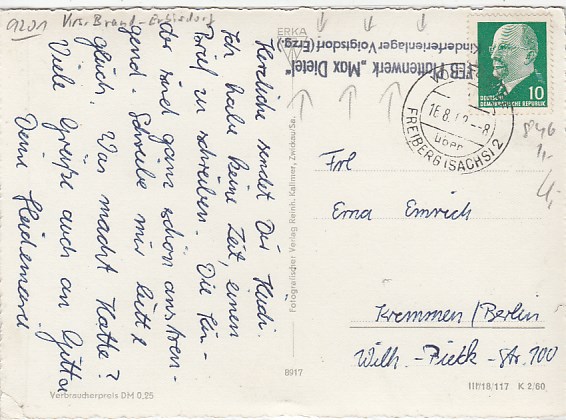 9201 Krs. Brand-Erbisdorf
Herzliche sendet Dir Heidi.
Ich habe keine Zeit, einen
Brief zu schreiben. Die Kin-
der sind ganz schön anstren-
gend. Schreibe mir bitte
gleich. Was macht Kathe?
Viele Grüße auch an Gitta
Deine Heidemarie
Verbraucherpreis DM 0,25
ERKA
Fotografischer Verlag Reinh. Kallmer, Zwickau/Sa.
8917
VEB Plattenwerk „Max Dietel"
Kinderferienlager Voigtsdorf (Erzg.)
16.8.62.-8
über
FREIBERG (SACHS) 2
10
DEUTSCHE
DEMOKRATISCHE REPUBLIK
846
1,-
4,-
Frl
Erna Emrich
Kremmen/Berlin
Wilh.-Pieck-Str. 100
III/18/117 K 2/60